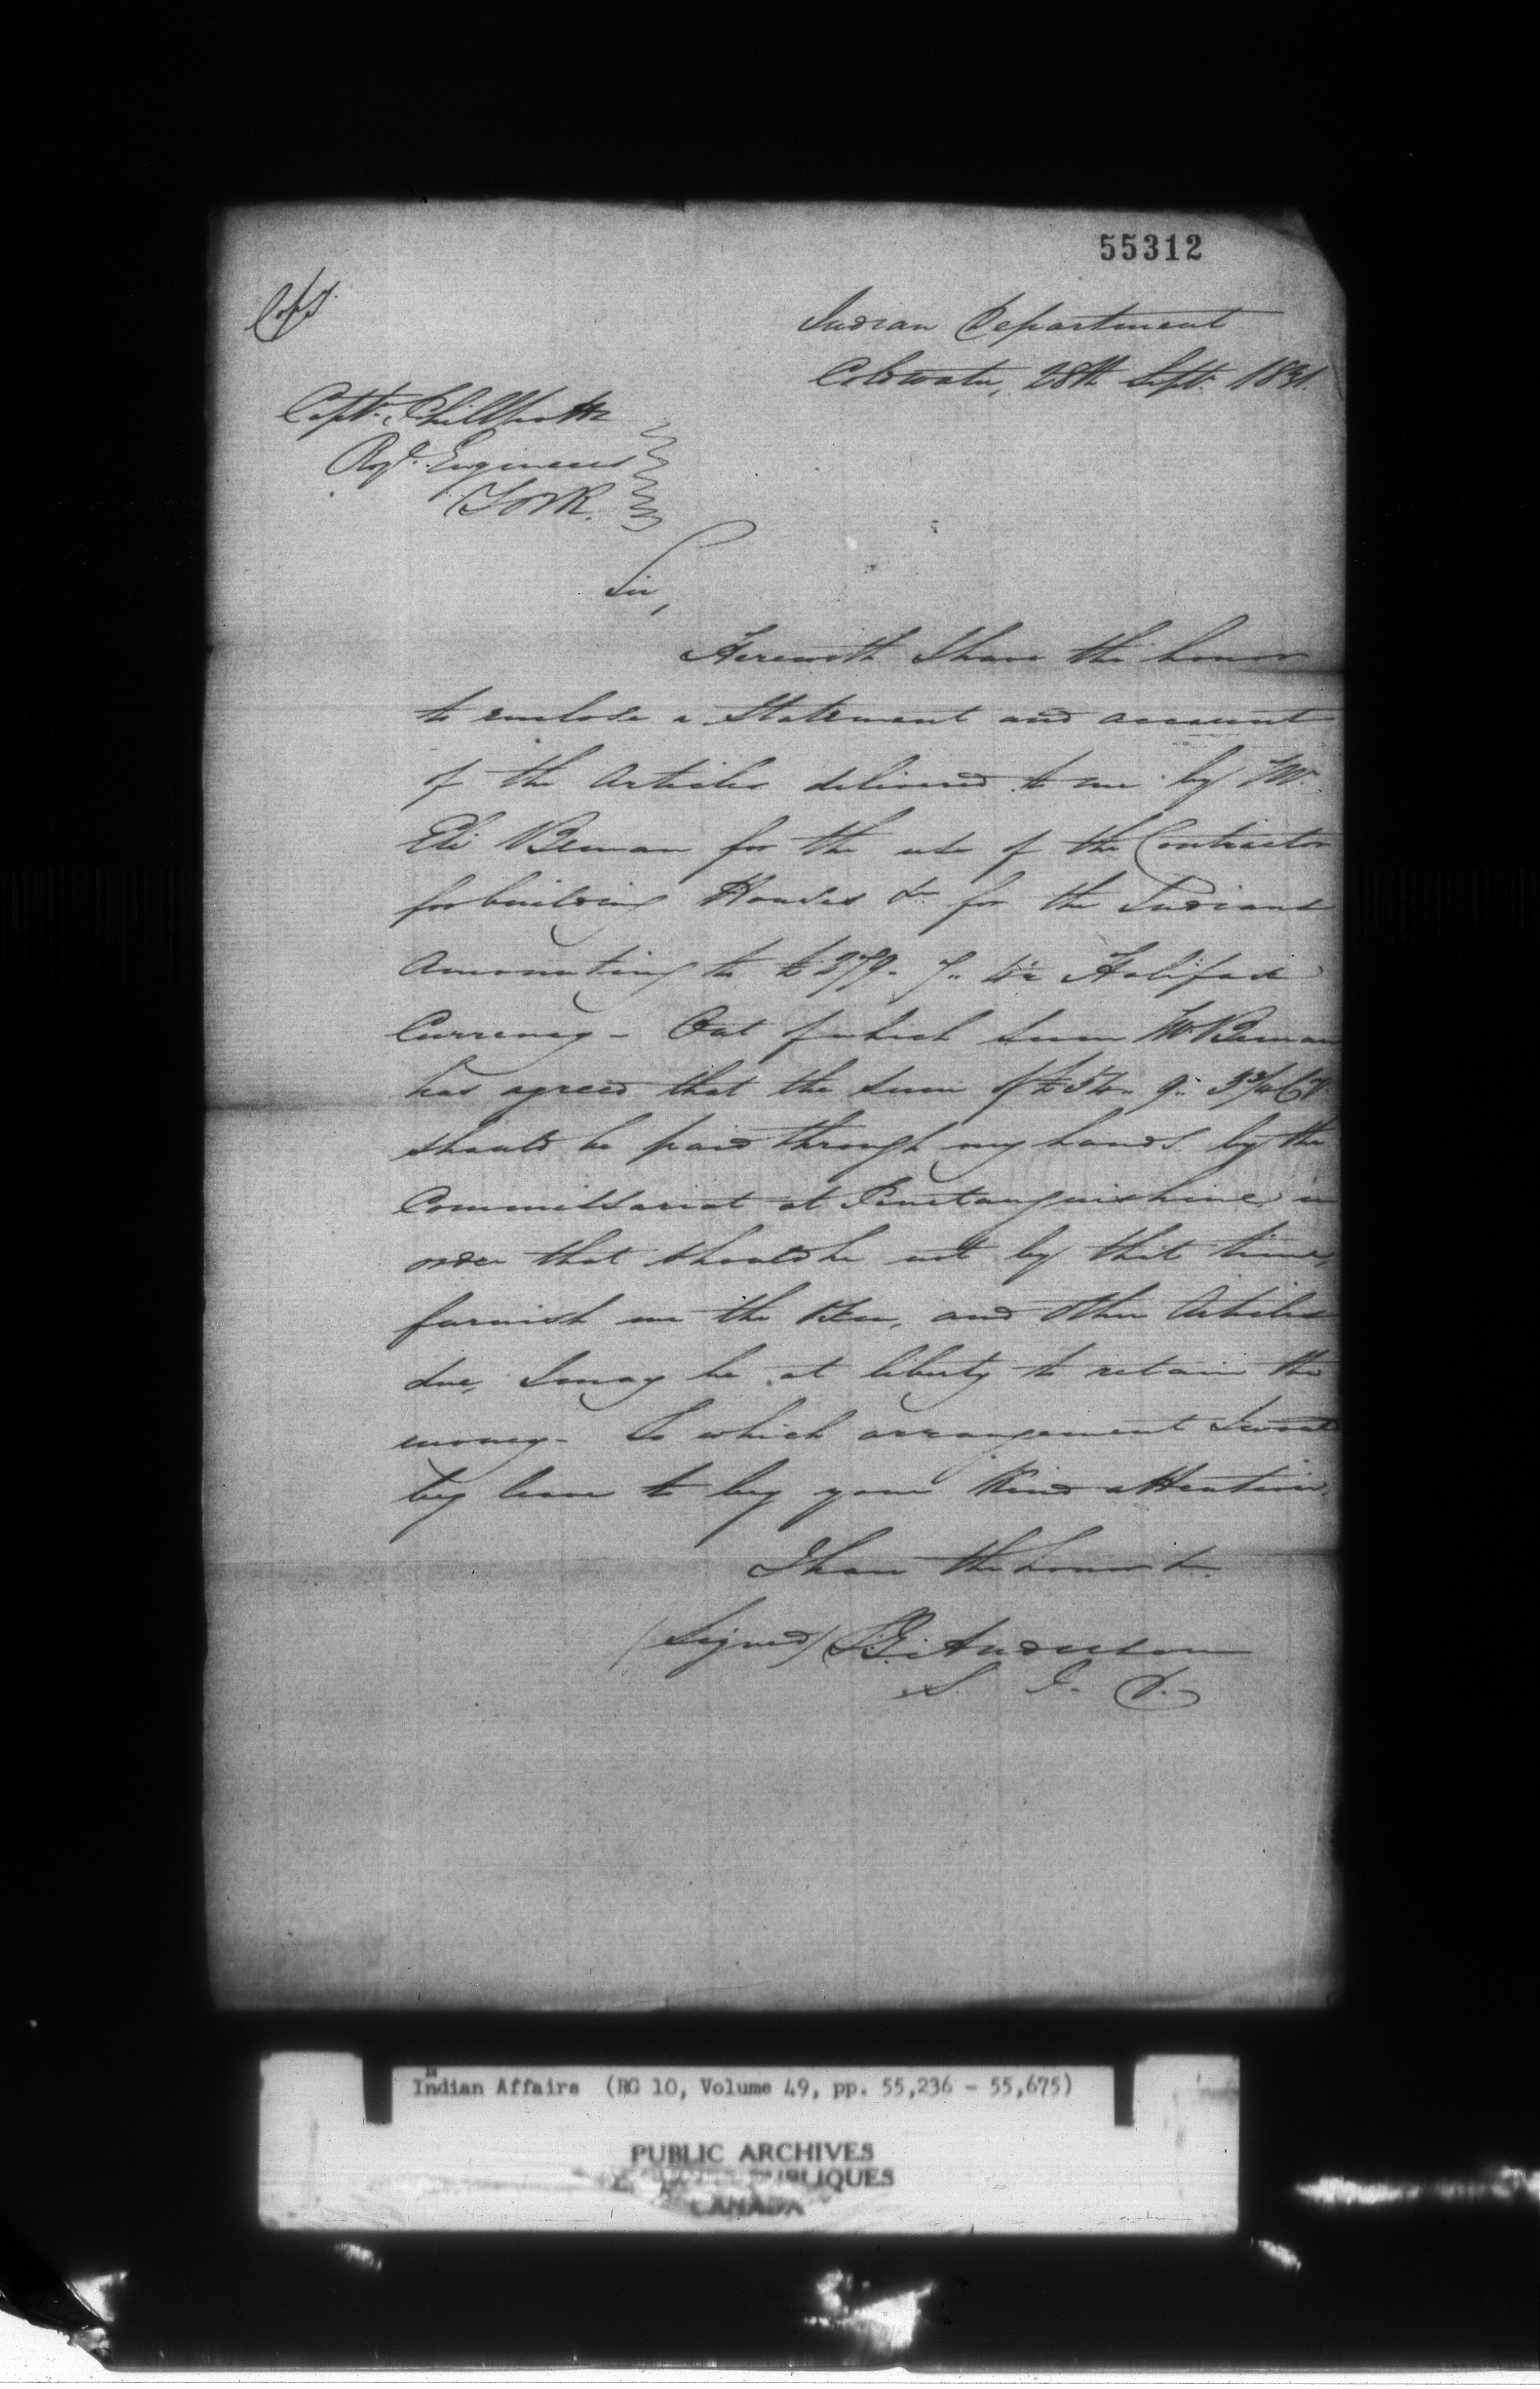 55312
Copy.
Indian Department
Coldwater, 28th Septr. 1831.
Captn. Phillpotts
Royl. Engineers
York.
Sir,
Herewith I have the honor
to enclose a Statement and account
of the Articles delivered to me by Mr.
Eli Beman for the use of the Contractor
for building Houses &c. for the Indians
Amounting to £279. 7.. Halifax
Currency - Out of which Sum Mr. Beman
has agreed that the Sum of
should be paid through my hands by the
Commissariat at Penetanguishine in
order that should he not by that time,
furnish me the and other Articles
due, I may be at liberty to retain the
money - To which arrangement I would
beg leave to beg your Kind attention.
I have the honor &c.
(Signed) T. G. Anderson
S. I. A.
Indian Affairs (RG 10, Volume 49, pp. 55,236 - 55,675)
PUBLIC ARCHIVES
PUBLIQUES
CANADA